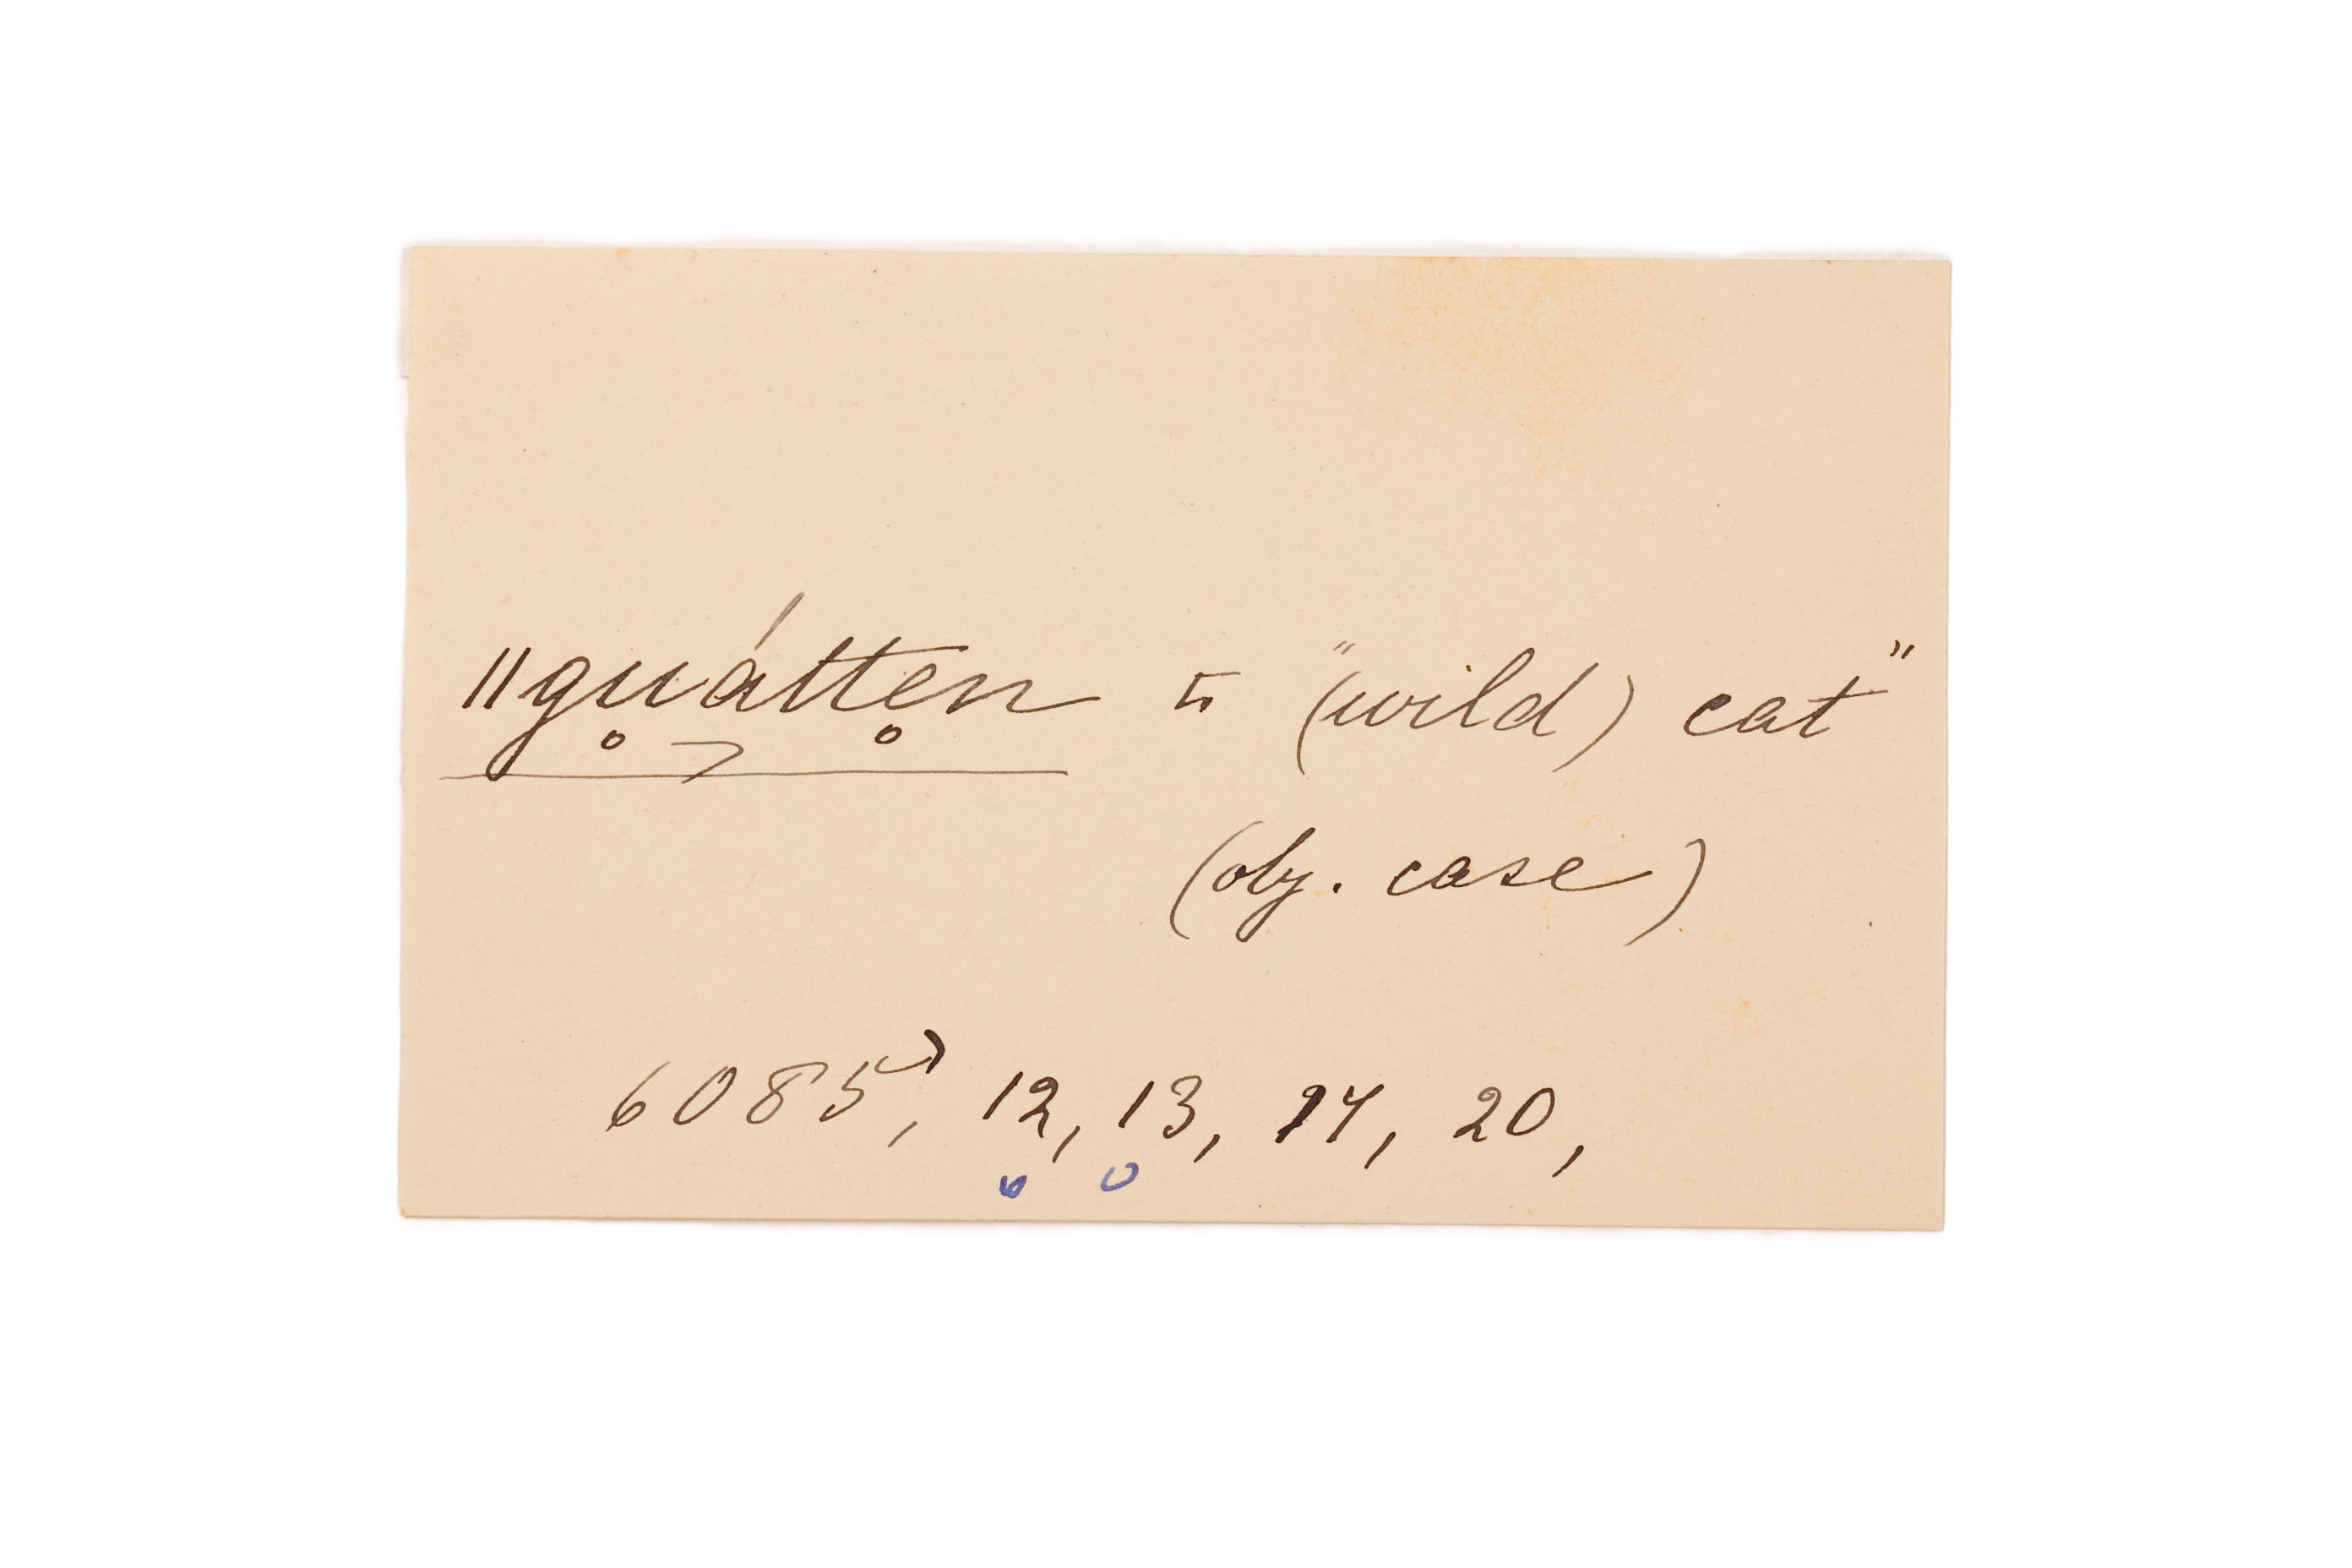 ǁgu̥átte̥n = "(wild) cat"
(obj. case)
6085', 12, 13, 14, 20,